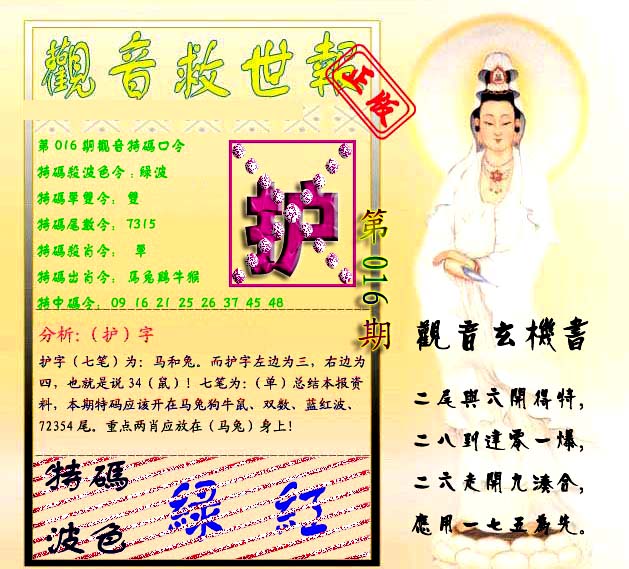 觀音救世報
正版
第016期觀音特碼口令
特碼殺波色令:綠波
特碼單雙令: 雙
特碼尾數令: 7315
特碼殺肖令: 單
特碼出肖令: 馬兔鷄牛猴
特中碼令: 09 16 21 25 26 37 45 48
护
第016期
分析:(护)字
护字(七笔)为:马和兔。而护字左边为三,右边为
四,也就是说34(鼠)!七笔为:(单)总结本报资
料,本期特码应该开在马兔狗牛鼠、双数、蓝红波、
72354尾。重点两肖应放在(马兔)身上!
特碼
波色
綠 紅
觀音玄機書
二尾與六開得特,
二八到達零一爆,
二六走開九湊合,
應用一七五為先。